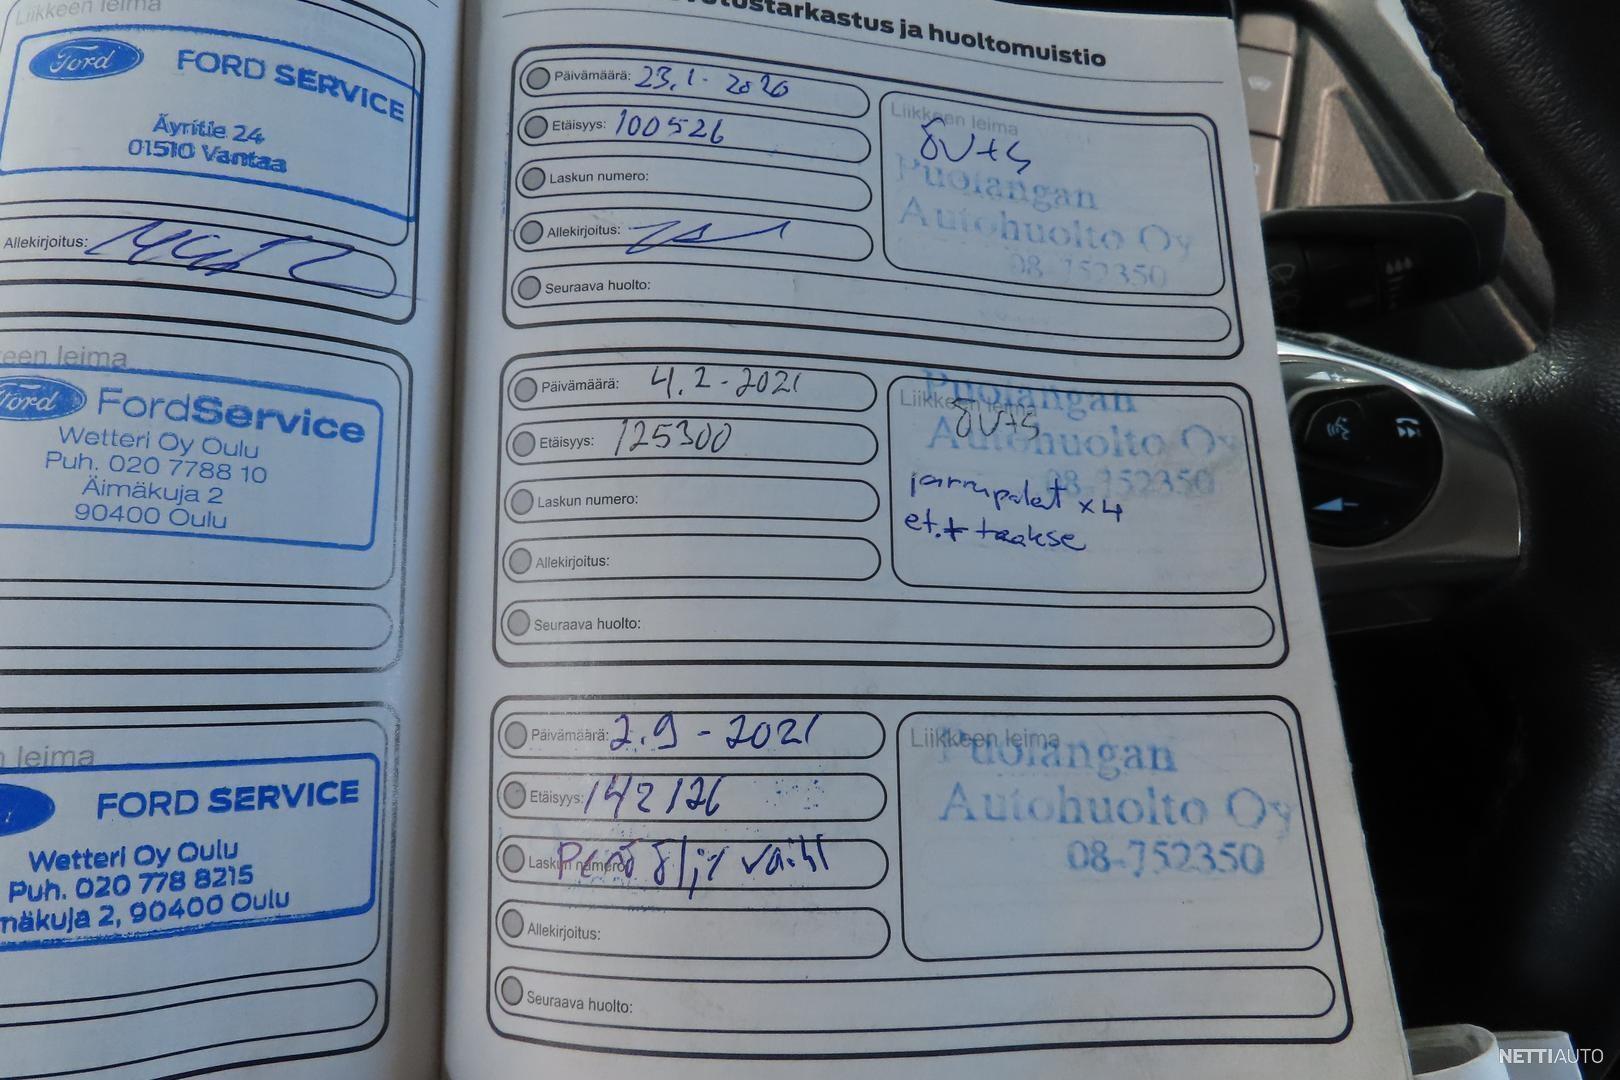 Liikkeen leima
Ford
FORD SERVICE
Äyritie 24
01510 Vantaa
Allekirjoitus:
keen leima
Ford
FordService
Wetteri Oy Oulu
Puh. 020 7788 10
Äimäkuja 2
90400 Oulu
leima
FORD SERVICE
Wetteri Oy Oulu
Puh. 020 778 8215
mäkuja 2, 90400 Oulu
otustarkastus ja huoltomuistio
Päivämäärä: 23.1-2020
Etäisyys: 100526
Laskun numero:
Allekirjoitus:
Seuraava huolto:
Liikkeen leima
ÖV+S
Puolangan
Autohuolto Oy
08-752350
Päivämäärä: 4.2-2021
Etäisyys: 125300
Laskun numero:
Allekirjoitus:
Seuraava huolto:
Liikkeen leima
Puolangan
ÖV+S
Autohuolto Oy
08-752350
jarrupalat x4
et.+ taakse
Päivämäärä: 2.9-2021
Etäisyys: 142126
Laskun numero: Perä öljyt vaiht
Allekirjoitus:
Seuraava huolto:
Liikkeen leima
Puolangan
Autohuolto Oy
08-752350
NETTIAUTO